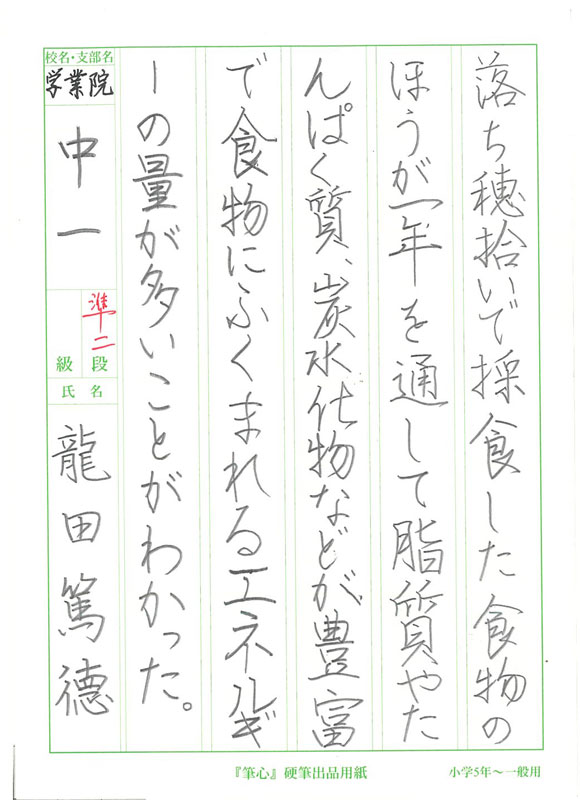 落ち穂拾いで採食した食物の
ほうが一年を通して脂質やた
んぱく質、炭水化物などが豊富
で食物にふくまれるエネルギ
ーの量が多いことがわかった。
校名・支部名
学業院
中一
準二
段
級
氏名
龍田篤德
『筆心』硬筆出品用紙
小学5年〜一般用